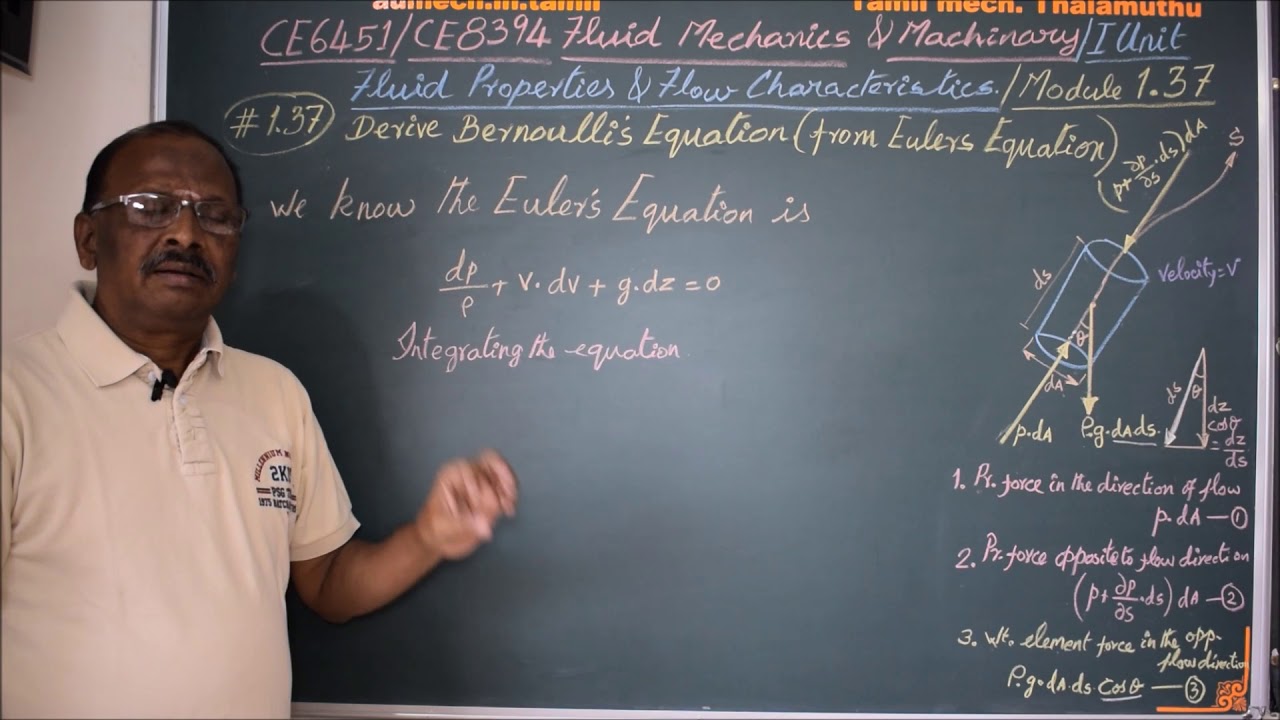 admech.in.tamil
Tamil mech. Thalamuthu
CE6451/CE8394 Fluid Mechanics & Machinary/I Unit
Fluid Properties & Flow Characteristics./Module 1.37
#1.37 Derive Bernoulli's Equation (from Eulers Equation)
We know the Euler's Equation is
dp/ρ + v.dv + g.dz = 0
Integrating the equation
(p+ ∂p/∂s .ds) dA
S
ds
Velocity=V
θ
dA
p.dA
ρ.g.dAds.
ds
θ
dz
cosθ
= dz/ds
1. Pr. force in the direction of flow
p.dA — ①
2. Pr. force opposite to flow direction
(p+ ∂p/∂s .ds) dA — ②
3. wt. element force in the opp.
flow direction
ρ.g.dA.ds cosθ — ③
2K
PSG